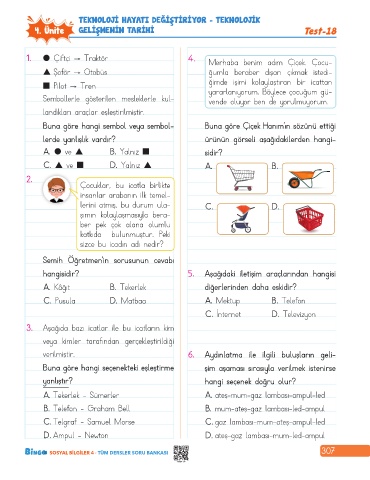 4. Ünite
TEKNOLOJİ HAYATI DEĞİŞTİRİYOR - TEKNOLOJİK
GELİŞMENİN TARİHİ
Test-18
1. ● Çiftçi → Traktör
▲ Şoför → Otobüs
■ Pilot → Tren
Sembollerle gösterilen mesleklerle kul-
landıkları araçlar eşleştirilmiştir.
Buna göre hangi sembol veya sembol-
lerde yanlışlık vardır?
A. ● ve ▲ B. Yalnız ■
C. ▲ ve ■ D. Yalnız ▲
2.
Çocuklar, bu icatla birlikte
insanlar arabanın ilk temel-
lerini atmış, bu durum ula-
şımın kolaylaşmasıyla bera-
ber pek çok alana olumlu
katkıda bulunmuştur. Peki
sizce bu icadın adı nedir?
Semih Öğretmen'in sorusunun cevabı
hangisidir?
A. Kâğıt B. Tekerlek
C. Pusula D. Matbaa
3. Aşağıda bazı icatlar ile bu icatların kim
veya kimler tarafından gerçekleştirildiği
verilmiştir.
Buna göre hangi seçenekteki eşleştirme
yanlıştır?
A. Tekerlek - Sümerler
B. Telefon - Graham Bell
C. Telgraf - Samuel Morse
D. Ampul - Newton
4.
Merhaba benim adım Çiçek. Çocu-
ğumla beraber dışarı çıkmak istedi-
ğimde işimi kolaylaştıran bir icattan
yararlanıyorum. Böylece çocuğum gü-
vende oluyor ben de yorulmuyorum.
Buna göre Çiçek Hanım'ın sözünü ettiği
ürünün görseli aşağıdakilerden hangi-
sidir?
A. B.
C. D.
5. Aşağıdaki iletişim araçlarından hangisi
diğerlerinden daha eskidir?
A. Mektup B. Telefon
C. İnternet D. Televizyon
6. Aydınlatma ile ilgili buluşların geli-
şim aşaması sırasıyla verilmek istenirse
hangi seçenek doğru olur?
A. ateş-mum-gaz lambası-ampul-led
B. mum-ateş-gaz lambası-led-ampul
C. gaz lambası-mum-ateş-ampul-led
D. ateş-gaz lambası-mum-led-ampul
BİNGO SOSYAL BİLGİLER 4 - TÜM DERSLER SORU BANKASI
307